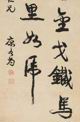 金戈鐵馬
里如虎
康有為